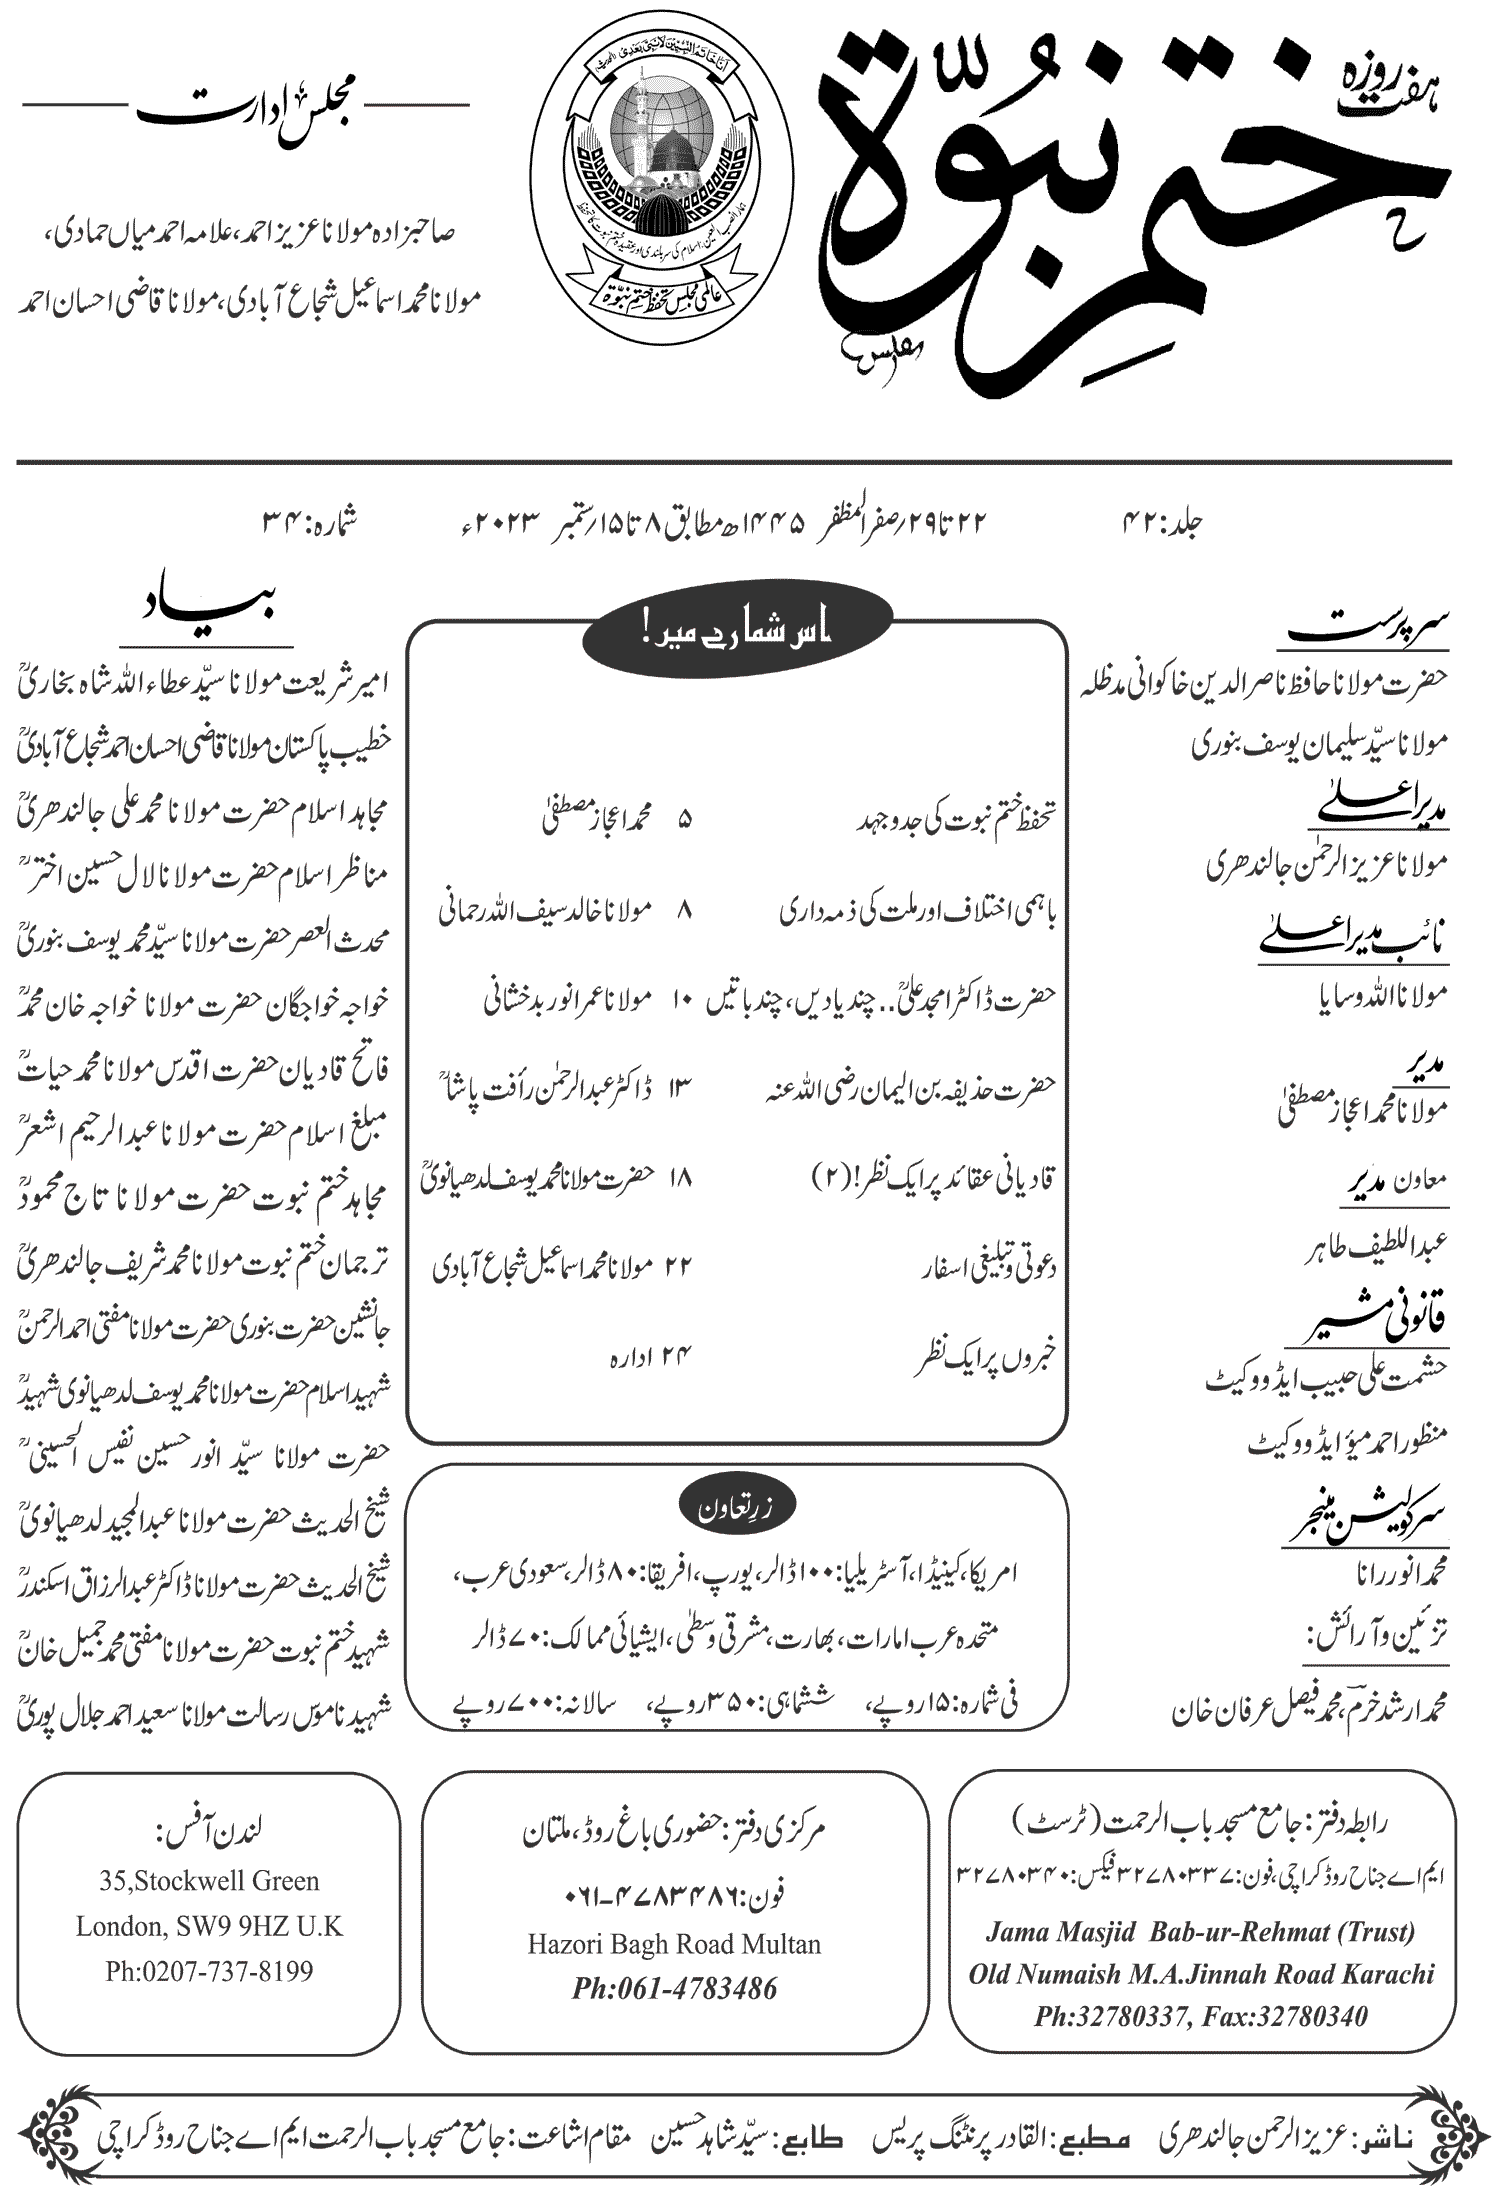 ہفت روزہ
ختم نبوّۃ
انا خاتم النبیین لا نبی بعدی
عالمی مجلس تحفظ ختم نبوّۃ
مجلس ادارت
صاحبزادہ مولانا عزیز احمد، علامہ احمد میاں حمادی،
مولانا محمد اسماعیل شجاع آبادی، مولانا قاضی احسان احمد
جلد: ۴۲
۲۲ تا ۲۹؍صفر المظفر ۱۴۴۵ھ مطابق ۸ تا ۱۵؍ستمبر ۲۰۲۳ء
شمارہ: ۳۴
سرپرست
حضرت مولانا حافظ ناصر الدین خاکوانی مدظلہ
مولانا سیّد سلیمان یوسف بنوری
مدیر اعلیٰ
مولانا عزیز الرحمٰن جالندھری
نائب مدیر اعلیٰ
مولانا اللہ وسایا
مدیر
مولانا محمد اعجاز مصطفیٰ
معاون مدیر
عبداللطیف طاہر
قانونی مشیر
حشمت علی حبیب ایڈووکیٹ
منظور احمد میؤ ایڈووکیٹ
سرکولیشن مینجر
محمد انور رانا
تزئین و آرائش:
محمد ارشد خرم، محمد فیصل عرفان خان
اس شمارے میں!
تحفظ ختم نبوت کی جدوجہد ۵ محمد اعجاز مصطفیٰ
باہمی اختلاف اور ملت کی ذمہ داری ۸ مولانا خالد سیف اللہ رحمانی
حضرت ڈاکٹر امجد علیؒ.. چند یادیں، چند باتیں ۱۰ مولانا عمر انور بدخشانی
حضرت حذیفہ بن الیمان رضی اللہ عنہ ۱۳ ڈاکٹر عبدالرحمٰن رأفت پاشاؒ
قادیانی عقائد پر ایک نظر! (۲) ۱۸ حضرت مولانا محمد یوسف لدھیانویؒ
دعوتی و تبلیغی اسفار ۲۲ مولانا محمد اسماعیل شجاع آبادی
خبروں پر ایک نظر ۲۴ ادارہ
زرِ تعاون
امریکا، کینیڈا، آسٹریلیا: ۱۰۰ ڈالر، یورپ، افریقا: ۸۰ ڈالر، سعودی عرب،
متحدہ عرب امارات، بھارت، مشرقی وسطیٰ، ایشیائی ممالک: ۷۰ ڈالر
فی شمارہ: ۱۵ روپے، ششماہی: ۳۵۰ روپے، سالانہ: ۷۰۰ روپے
بیاد
امیر شریعت مولانا سیّد عطاء اللہ شاہ بخاریؒ
خطیب پاکستان مولانا قاضی احسان احمد شجاع آبادیؒ
مجاہد اسلام حضرت مولانا محمد علی جالندھریؒ
مناظر اسلام حضرت مولانا لال حسین اخترؒ
محدث العصر حضرت مولانا سیّد محمد یوسف بنوریؒ
خواجہ خواجگان حضرت مولانا خواجہ خان محمدؒ
فاتح قادیان حضرت اقدس مولانا محمد حیاتؒ
مبلغ اسلام حضرت مولانا عبدالرحیم اشعرؒ
مجاہد ختم نبوت حضرت مولانا تاج محمودؒ
ترجمان ختم نبوت مولانا محمد شریف جالندھریؒ
جانشین حضرت بنوری حضرت مولانا مفتی احمد الرحمنؒ
شہید اسلام حضرت مولانا محمد یوسف لدھیانوی شہیدؒ
حضرت مولانا سیّد انور حسین نفیس الحسینیؒ
شیخ الحدیث حضرت مولانا عبدالمجید لدھیانویؒ
شیخ الحدیث حضرت مولانا ڈاکٹر عبدالرزاق اسکندرؒ
شہید ختم نبوت حضرت مولانا مفتی محمد جمیل خانؒ
شہید ناموس رسالت مولانا سعید احمد جلال پوریؒ
رابطہ دفتر: جامع مسجد باب الرحمت (ٹرسٹ)
ایم اے جناح روڈ کراچی، فون: ۳۲۷۸۰۳۳۷ فیکس: ۳۲۷۸۰۳۴۰
Jama Masjid Bab-ur-Rehmat (Trust)
Old Numaish M.A.Jinnah Road Karachi
Ph:32780337, Fax:32780340
مرکزی دفتر: حضوری باغ روڈ، ملتان
فون: ۰۶۱-۴۷۸۳۴۸۶
Hazori Bagh Road Multan
Ph:061-4783486
لندن آفس:
35,Stockwell Green
London, SW9 9HZ U.K
Ph:0207-737-8199
ناشر: عزیز الرحمن جالندھری مطبع: القادر پرنٹنگ پریس طابع: سیّد شاہد حسین مقام اشاعت: جامع مسجد باب الرحمت ایم اے جناح روڈ کراچی